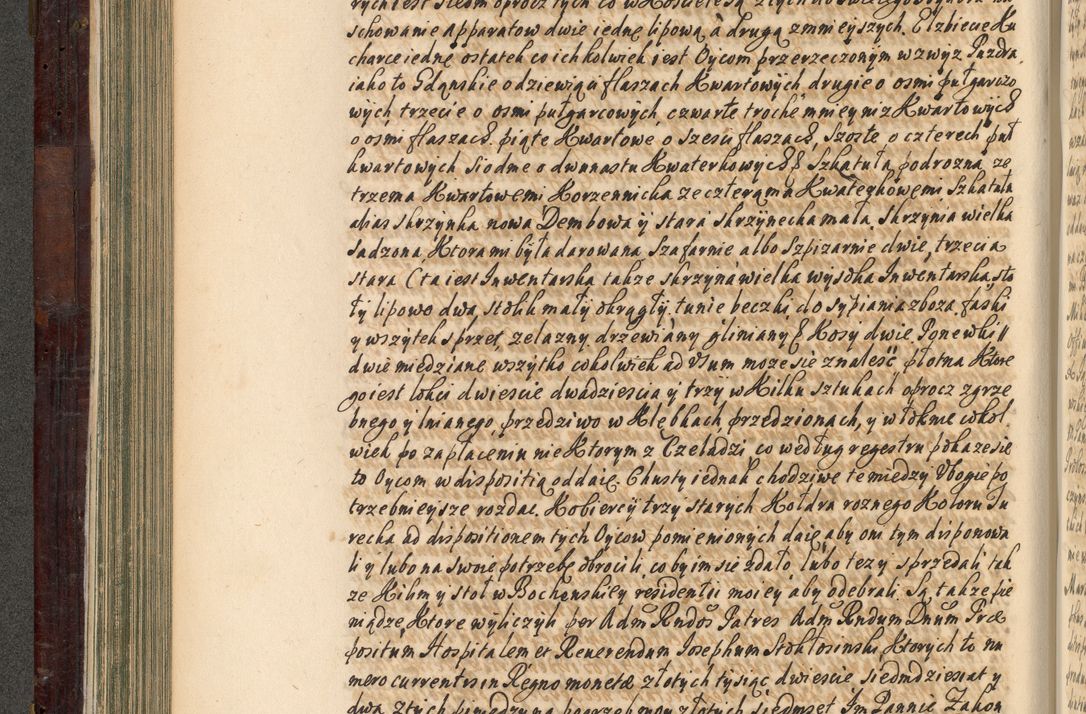 rych iest siedm oprocz tych co w Kosciele są z tych do
schowanie Apparatow dwie iednę lipową, a drugą z mnieyszych. Elzbiecie Ku
charce iednę ostatek co ich kolwiek iest Oycom przerzeczonym wzwyz Puzdra,
iako to Gdąnskie o dziewiąci flaszach Kwartowych drugie o osmi pułgarczo
wych trzecie o osmi pułgarcowych, czwarte trochę mniey niz Kwartowych
o osmi flaszach. piąte Kwartowe o sześci flaszach, szoste o czterech puł
kwartowych siodme o dwunastu Kwaterkowych & Szkatuła podrozna, ze
trzema Kwartowemi Korzennicka ze czterąma Kwaterkowemi Szkatuła
alias skrzynka nowa Dembowa y stara skrzynecka mała, skrzynia wielka
sadzona, Ktora mi była darowana, Szafarnie albo Szpizarnie dwie, trzecia
stara (ta iest Inwentarska także skrzyna wielka wysoka Inwentarska, sto
ły lipowe dwa, stolik mały okrągły, tunie beczki, do sypiania zboza, faski
y wszytek sprzęt, zelazny drzewiany gliniany & Kosy dwie Ponewki
dwie miedziane wszytko cokolwiek ad Usum moze się znaleść, płotna Ktore
go iest łokci dwiescie dwadziescia y trzy w Kilku sztukach oprocz zgrze
bnego y lnianego, przedziwo w Kłębkach, przedzionach, y w łokme cokol
wiek po zapłaceniu nie Ktorym z Czeladzi, co według regestru pokaze się
to Oycom w dispositią oddaię. Chusty iednak chodziwe te miedzy Ubogie po
trzebnieysze rozdać, Kobiercy trzy starych Kołdra roznego Koloru Tu
recka ad dispositionem tych Oycow pomienionych daię aby oni tym disponowa
li y lubo na swoię potrzebę obrocili, co by im się zdało, lubo tez y sprzedali tak
ze Kilim y stoł w Bochenskiey residentii moiey aby odebrali. Są także pie
niądze, Ktore wyliczyli per Adm Rndos Patres Adm Rndum Dnum Præ
positum Hospitalem et Reuerendum Iosephum Stokłosinski Ktorych to nu
mero currentis in Regno monetæ złotych tysiąc dwiescie siedmdziesiat y
dwa złtych pieniędzy na pogrzeb moy złotych siedmset Im Pannie Zakon